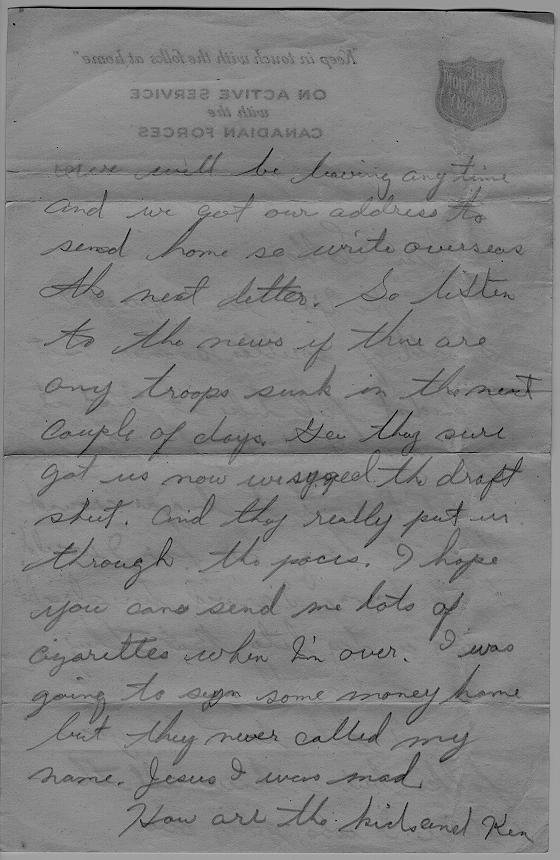 "Keep in touch with the folks at home"
ON ACTIVE SERVICE
with the
CANADIAN FORCES
THE SALVATION ARMY
we will be leaving anytime
and we got our address to
send home so write overseas
the next letter. So listen
to the news if there are
any troops sunk in the next
couple of days. Gee they sure
got us now we signed the draft
sheet. And they really put us
through the paces. I hope
you can send me lots of
cigarettes when I'm over. I was
going to sign some money home
but they never called my
name. Jesus I was mad
How are the kids and Ken